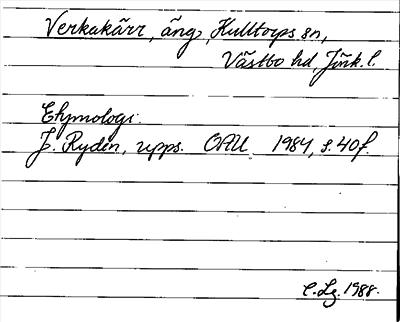 Verkakärr, äng, Hulltorps sn,
Västbo hd, Jönk. l.
Etymologi:
J. Rydén, upps. OAU 1984, s. 40 f.
C. Lg. 1988.